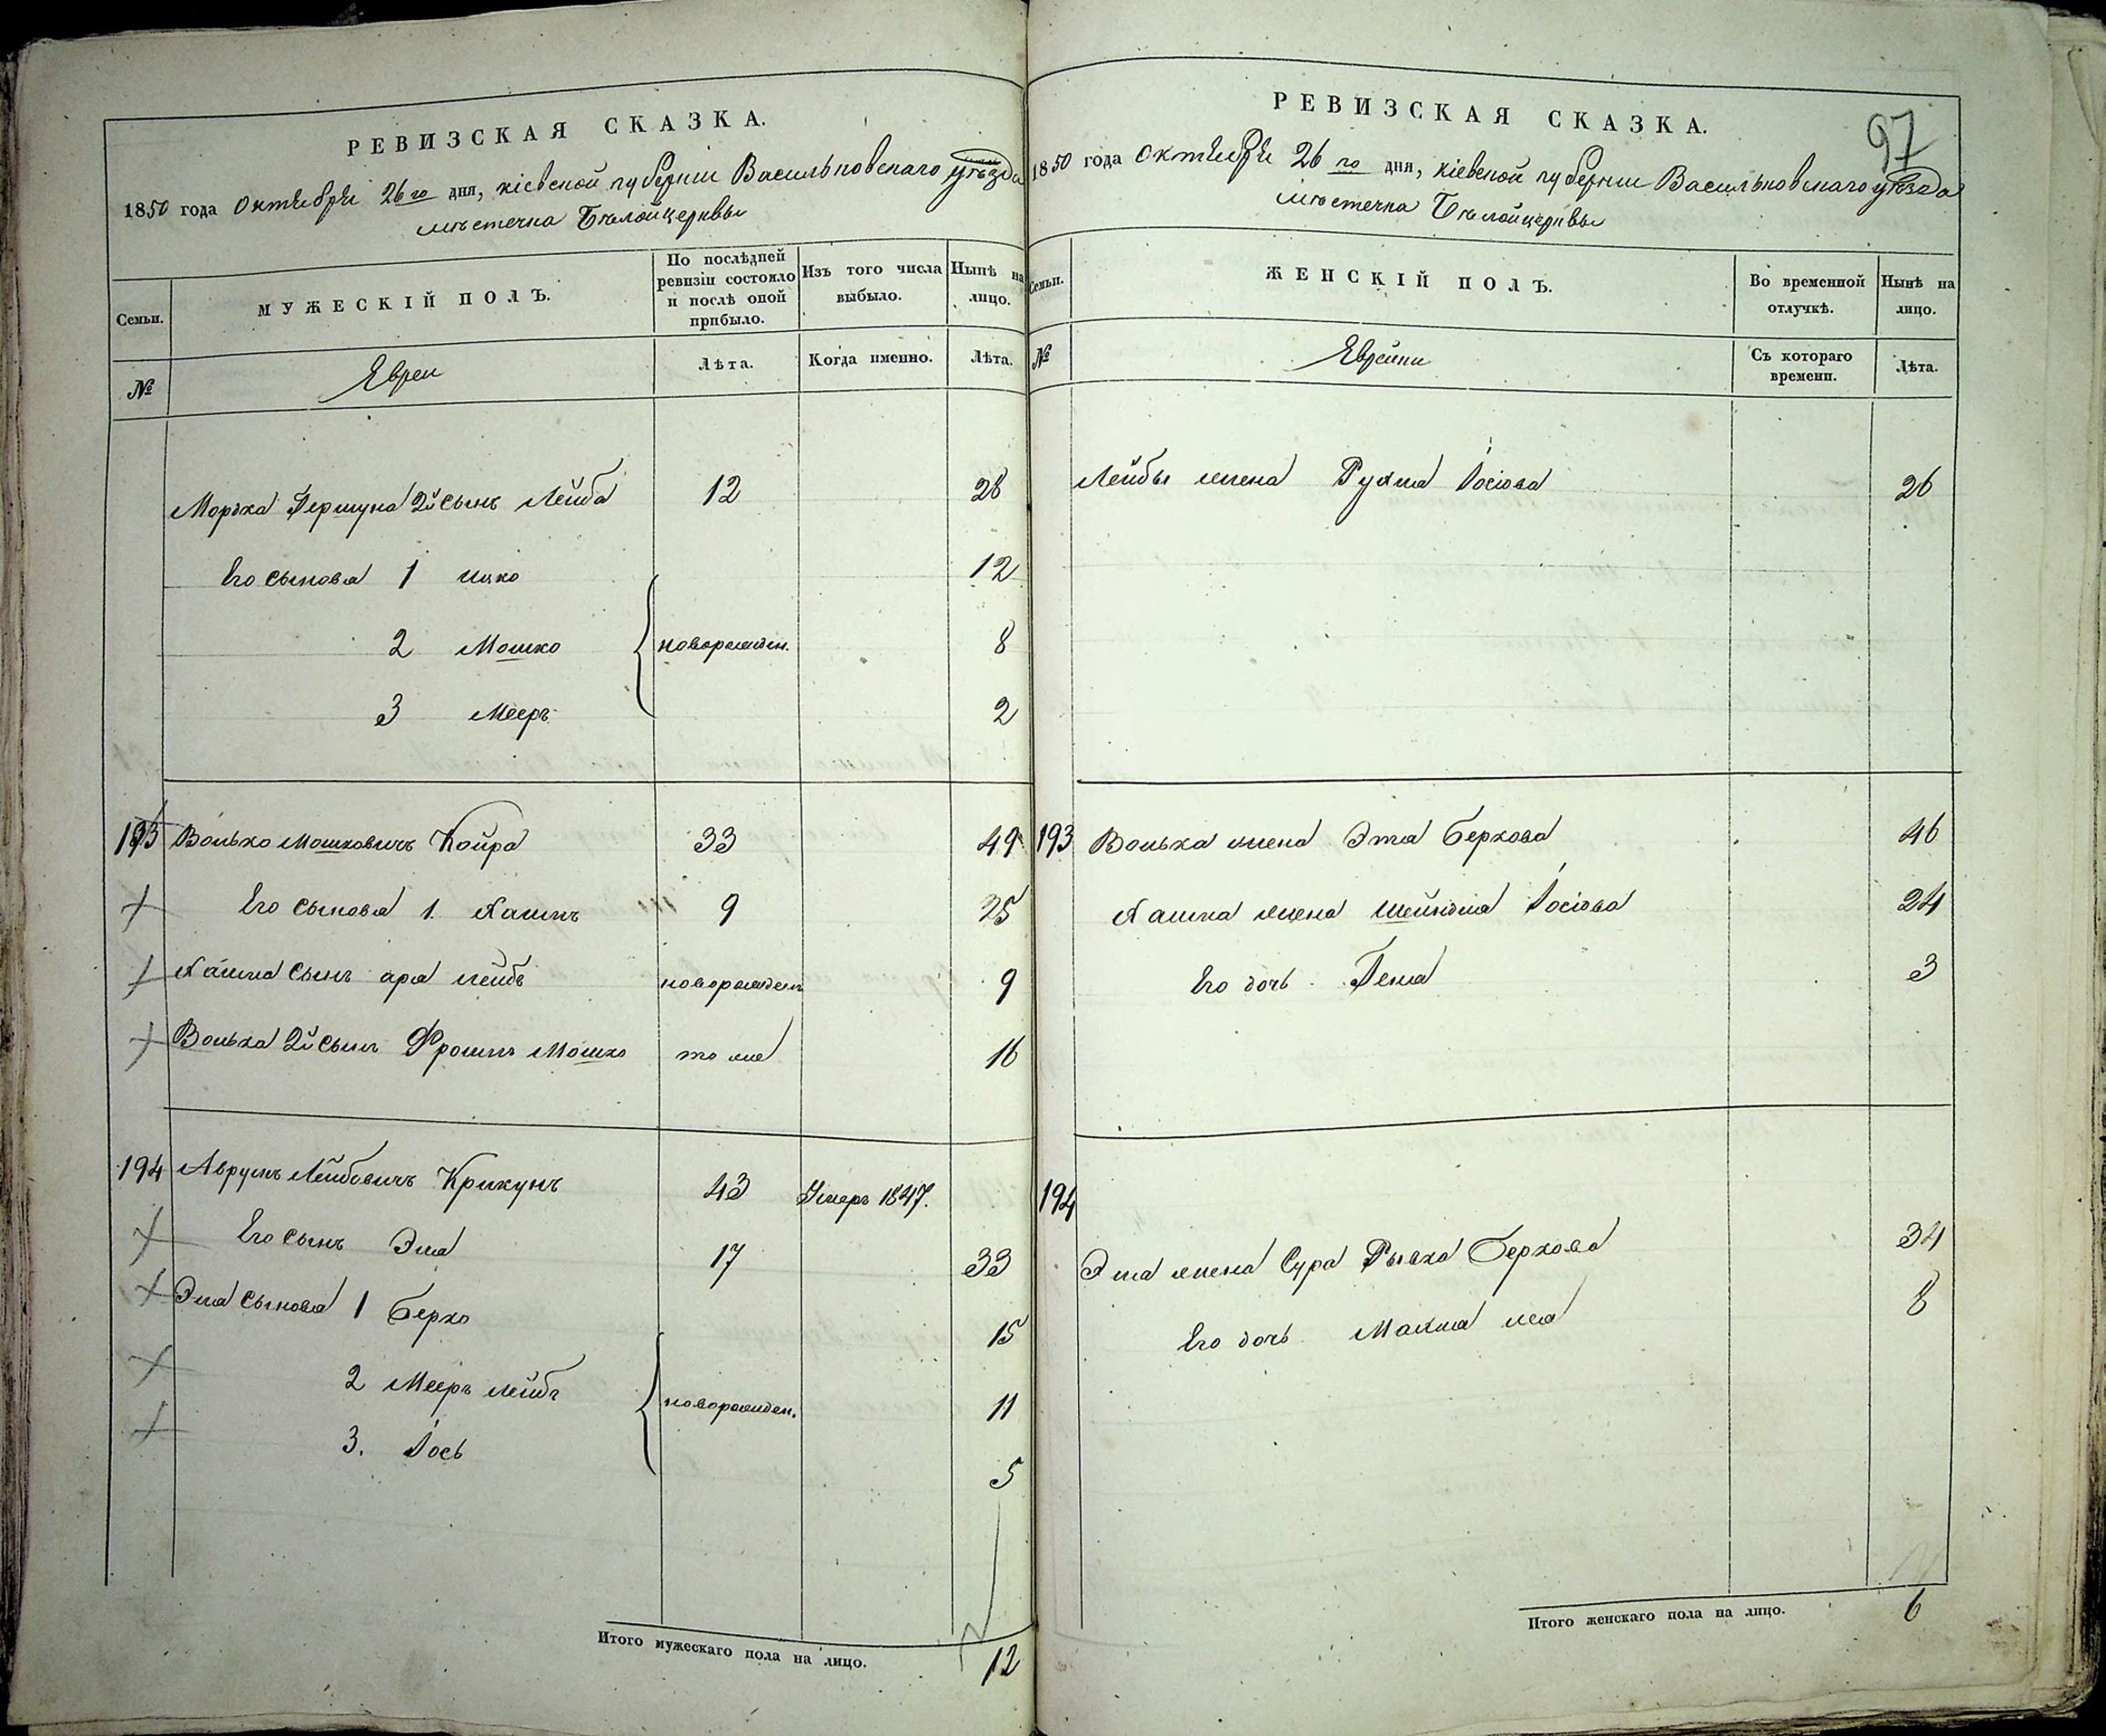 РЕВИЗСКАЯ СКАЗКА.
1850 года Октября 26го дня, кіевской губерніи Васильковскаго уѣзда
мѣстечка Бѣлойцеркви
Семьи.
МУЖЕСКІЙ ПОЛЪ.
По послѣдней ревизіи состояло и послѣ оной прибыло.
Изъ того числа выбыло.
Нынѣ на лицо.
№
Евреи
Лѣта.
Когда именно.
Лѣта.
Мордка Гершуна 2й сынъ Лейба 12 28
Его сыновья 1 Ицко 12
2 Мошко новорожден. 8
3 Мееръ 2
193 Волько Мошковичъ Койра 33 49
Его сыновья 1. Хаимъ 9 25
Хаима сынъ ара лейбъ новорожден 9
Волька 2й сынъ Фроимъ Мошко то же 16
194 Аврумъ Лейбовичъ Крикунъ 43 Умеръ 1847.
Его сынъ Эла 17 33
Эла сыновья 1 Берко 15
2 Мееръ лейбъ новорожден. 11
3. Іось 5
Итого мужескаго пола на лицо. 12
РЕВИЗСКАЯ СКАЗКА.
97
1850 года Октября 26го дня, кіевской губерніи Васильковскаго уѣзда
мѣстечка Бѣлойцеркви
Семьи.
ЖЕНСКІЙ ПОЛЪ.
Во временной отлучкѣ.
Нынѣ на лицо.
№
Еврейки
Съ котораго времени.
Лѣта.
Лейбы жена Рухля Іосіова 26
193 Волька жена Эта Беркова 46
Хаима жена Шейндля Іосіова 24
Его дочь Геня 3
194
Эла жена Сура Рывка Беркова 34
Его дочь Махля лея 8
Итого женскаго пола на лицо. 6